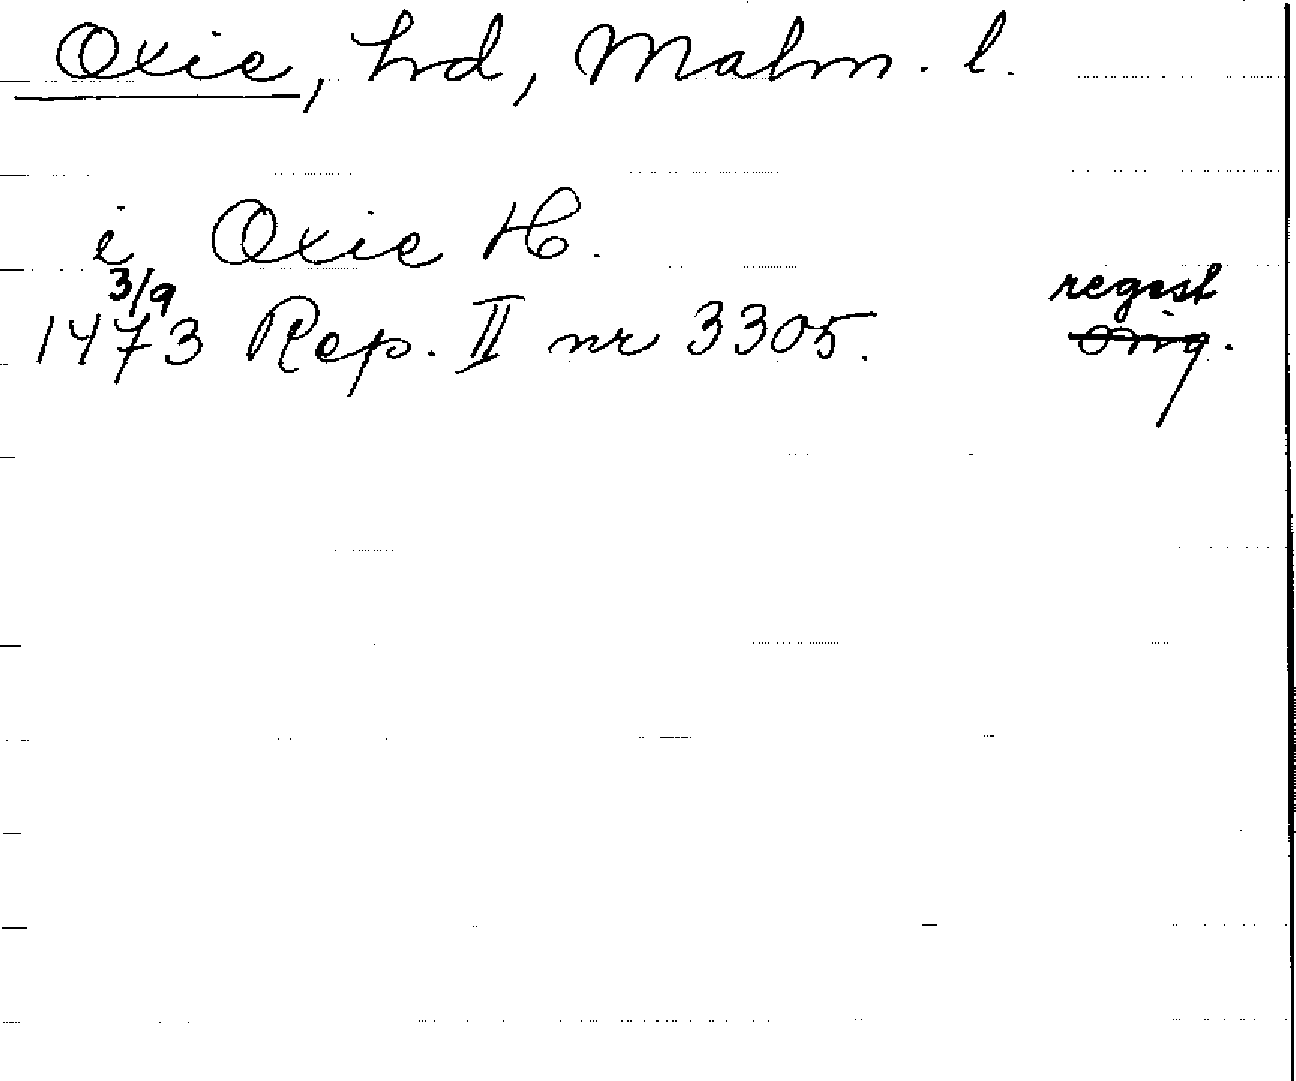 Oxie, hd, Malm. l.
i Oxie H.
3/9 regist
1473 Rep. II nr 3305. orig.